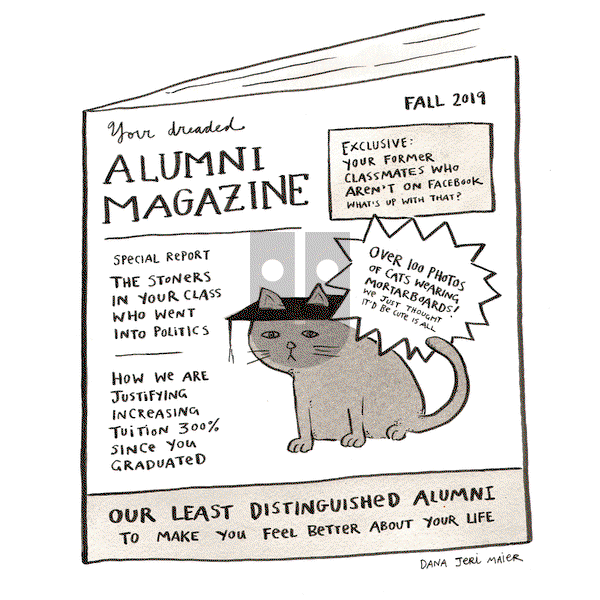 FALL 2019
Your dreaded
ALUMNI
MAGAZINE
EXCLUSIVE:
YOUR FORMER
CLASSMATES WHO
AREN'T ON FACEBOOK
WHAT'S UP WITH THAT?
SPECIAL REPORT
THE STONERS
IN YOUR CLASS
WHO WENT
INTO POLITICS
OVER 100 PHOTOS
OF CATS WEARING
MORTARBOARDS!
WE JUST THOUGHT
IT'D BE CUTE IS ALL
HOW WE ARE
JUSTIFYING
INCREASING
TUITION 300%
SINCE YOU
GRADUATED
OUR LEAST DISTINGUISHED ALUMNI
TO MAKE YOU FEEL BETTER ABOUT YOUR LIFE
DANA JERI MAIER